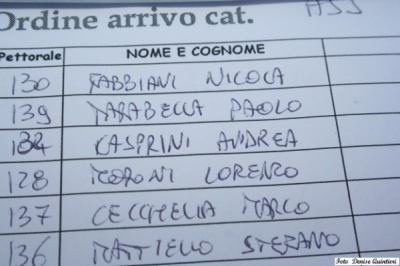 Ordine arrivo cat. ASS
Pettorale NOME E COGNOME
130 FABBIANI NICOLA
139 MARABELLA PAOLO
CASPRINI ANDREA
128 MORONI LORENZO
137 CECCHELLA MARCO
136 MATTIELLO STEFANO
Foto Denise Quintieri